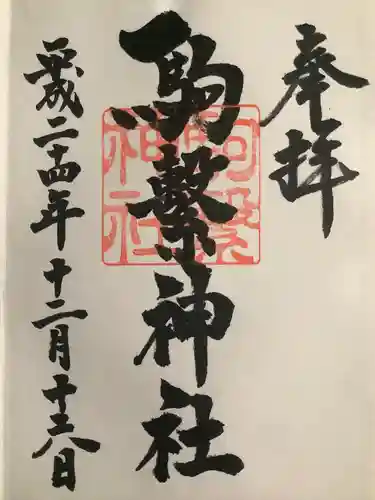 奉拝
駒繋神社
駒繋神社
平成二十四年十二月十六日